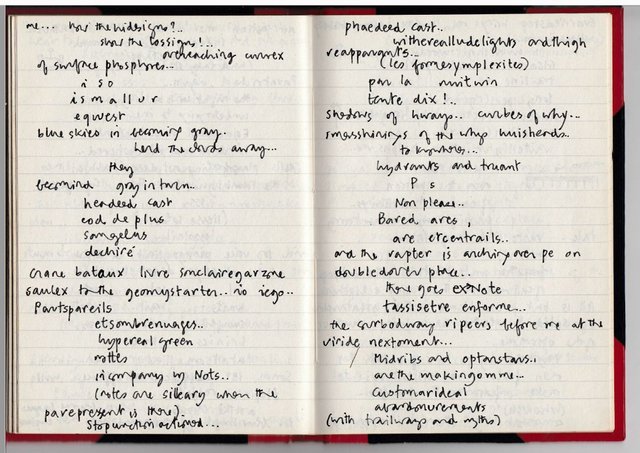 me... how the hidesigns?..
show the lossigns!..
overreaching curvex
of surface phosphores...
i s o
i s m a l l u r
eqwest
blue skies in becoming gray..
herd the clouds away...
they
becomind gray in turn..
herdeed cast
cod de plus
sangelus
dechiré
crane bataux livre smclairegarzone
saulex to the geomystarter.. no iego..
Partspareils
etsombrenuages..
hypereal green
mottes
in company by Nots...
(notes are silleary when the
parepresent is there).
Stopunctionactioned...
phaedeed cast..
witherealludelights and thigh
reapparants...
(les formesymplexites)
par la nuit win
tante dix!..
shadows of hways.. curbes of why...
smosshinings of the whyp huisherds..
to knowheres...
hydrants and truant
P s
Non please..
Bared arcs,
are etcentrails...
and the rapter is arching over pe on
doubledover place..
there goes exNote
tassisetre enforme...
the surbodway ripeers before me at the
viride nextoment...
Midribs and optanstans..
are the makingomme...
Customarideal
abandonurements
(with trailways and myths)